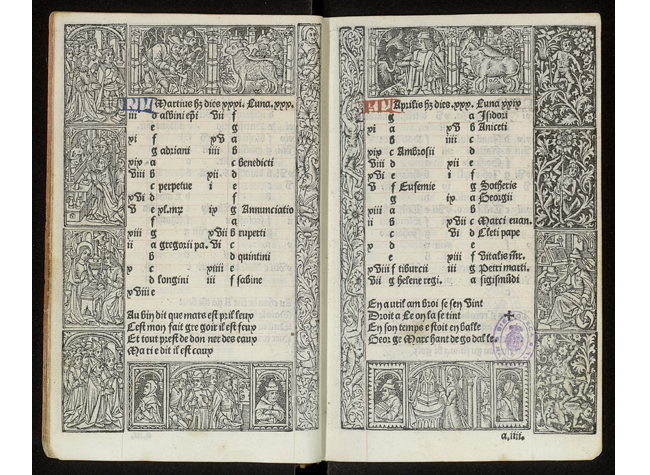 KL Martius hz dies xxxi. Luna. xxx.
iii d albini epi vii f
e g
xi f xv a
g adriani iiii b
xix a c benedicti
viii b xii d
c perpetue i e
xvi d f
v e ix g Annunciatio
f a
xiii g xvii b ruperti
ii a gregorii pa. vi c
b d quintini
x c xiiii e
d longini iii f sabine
xviii e
Au bin dit que mars est pril leux
Cest mon fait gre goir il est feux
Et tout prest de don ner des eaux
Ma ri e dit il est caux
KL Aprilis hz dies .xxx. Luna xxix
g a Isidori
xi a xv b Aniceti
b iiii c
xix c Ambrosii d
viii d xii e
xvi e i f
v f Eufemie g Sotheris
g ix a Georgii
xiii a b
ii b xvii c Marci euan.
c vi d Cleti pape
x d e
e xiiii f Vitalis mr.
xviii f tiburcii iii g Petri marti.
vii g helene regi. a sigismudi
En auril am broi se sen vint
Droit a Le on sa se tint
En son temps e stoit en balle
Geor ge Marc hant de go dal le
a.iiii.